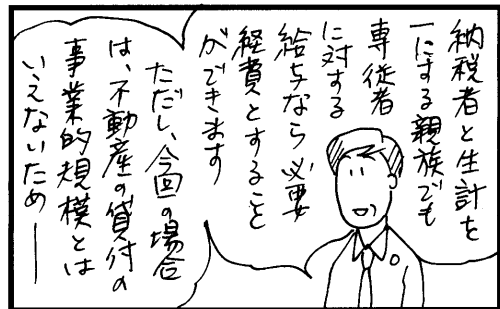 納税者と生計を
一にする親族でも
専従者
に対する
給与なら必要
経費とすること
ができます
ただし、今回の場合
は、不動産の貸付の
事業的規模とは
いえないため──